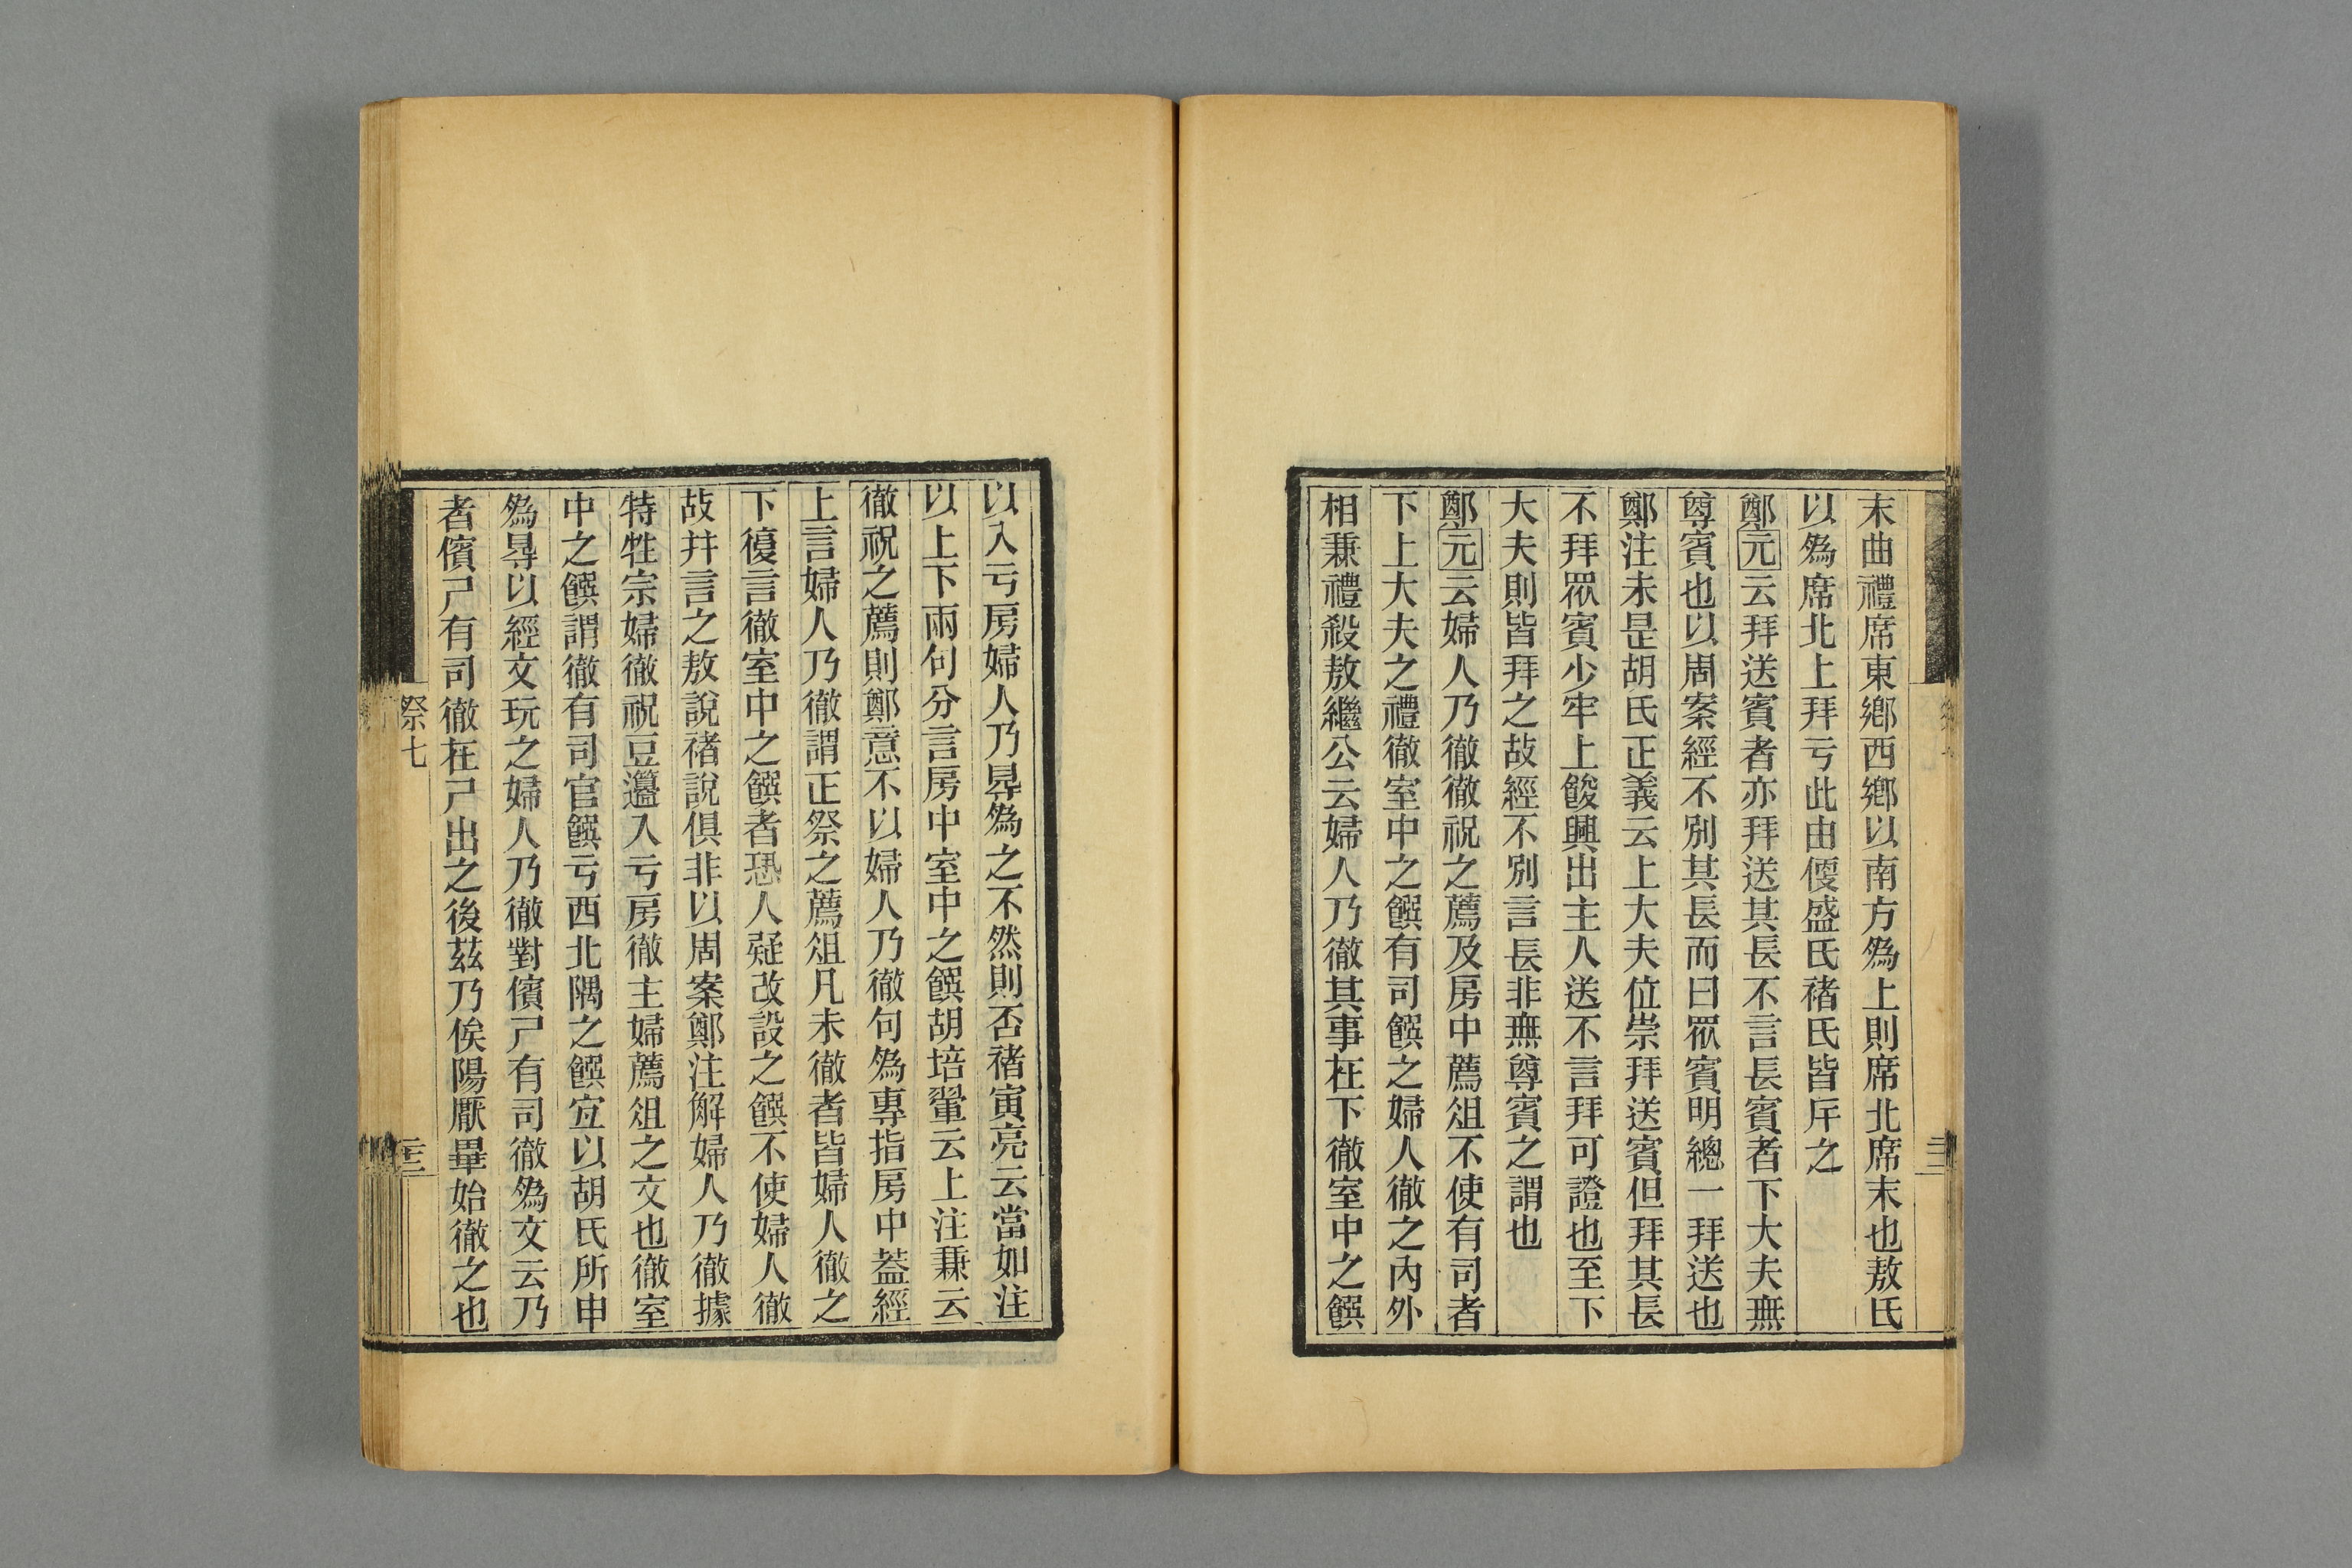 末曲禮席東鄕西鄕以南方爲上則席北席末也敖氏
以爲席北上拜亏此由偃盛氏褚氏皆斥之
鄭元云拜送賓者亦拜送其長不言長賓者下大夫無
尊賓也以周案經不別其長而曰眾賓明總一拜送也
鄭注未是胡氏正義云上大夫位崇拜送賓但拜其長
不拜眾賓少牢上餕興出主人送不言拜可證也至下
大夫則皆拜之故經不別言長非無尊賓之謂也
鄭元云婦人乃徹徹祝之薦及房中薦俎不使有司者
下上大夫之禮徹室中之饌有司饌之婦人徹之內外
相兼禮殺敖繼公云婦人乃徹其事在下徹室中之饌
以入亏房婦人乃㝵爲之不然則否褚寅亮云當如注
以上下兩句分言房中室中之饌胡培翬云上注兼云
徹祝之薦則鄭意不以婦人乃徹句爲專指房中葢經
上言婦人乃徹謂正祭之薦俎凡未徹者皆婦人徹之
下復言徹室中之饌者恐人疑改設之饌不使婦人徹
故幷言之敖說褚說俱非以周案鄭注解婦人乃徹據
特牲宗婦徹祝豆籩入亏房徹主婦薦俎之文也徹室
中之饌謂徹有司官饌亏西北隅之饌宜以胡氏所申
爲㝵以經文玩之婦人乃徹對儐尸有司徹爲文云乃
者儐尸有司徹在尸出之後茲乃俟陽厭畢始徹之也
祭七